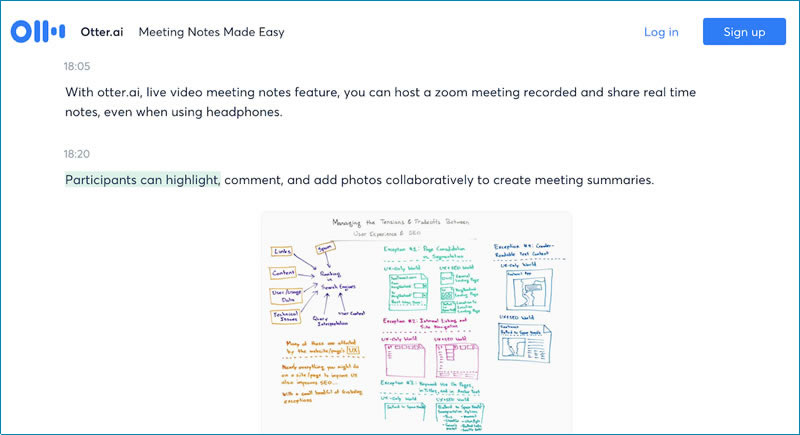 Otter.ai Meeting Notes Made Easy Log in Sign up
18:05
With otter.ai, live video meeting notes feature, you can host a zoom meeting recorded and share real time
notes, even when using headphones.
18:20
Participants can highlight, comment, and add photos collaboratively to create meeting summaries.
Managing the Tensions & Tradeoffs Between
User Experience & SEO
Links
Spam
Content
Ranking
in
Search Engines
User/Usage
Data
Technical
Issues
Query
Interpretation
User Context
Many of these are affected
by the website/page's UX
Nearly everything you might do
on a site/page to improve UX
also improves SEO...
With a small handful of frustrating
exceptions
Exception #1: Page Consolidation
vs Segmentation
UX-Only World
UX+SEO World
Exception #2: Internal Linking and
Site Navigation
UX-Only World
UX+SEO World
Exception #3: Keyword Use On Pages,
in Titles, and in Anchor Text
UX-Only World
UX+SEO World
Exception #4: Crawler-
Readable Text Content
UX-Only World
UX+SEO World